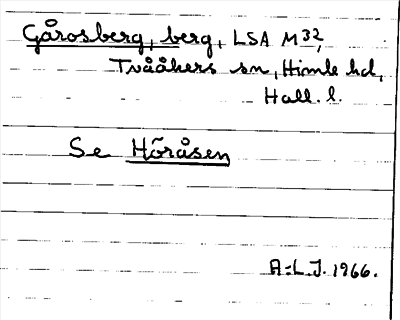 Gårosberg, berg, LSA M32,
Tvååkers sn, Himle hd,
Hall. l.
Se Höråsen
A-L J. 1966.